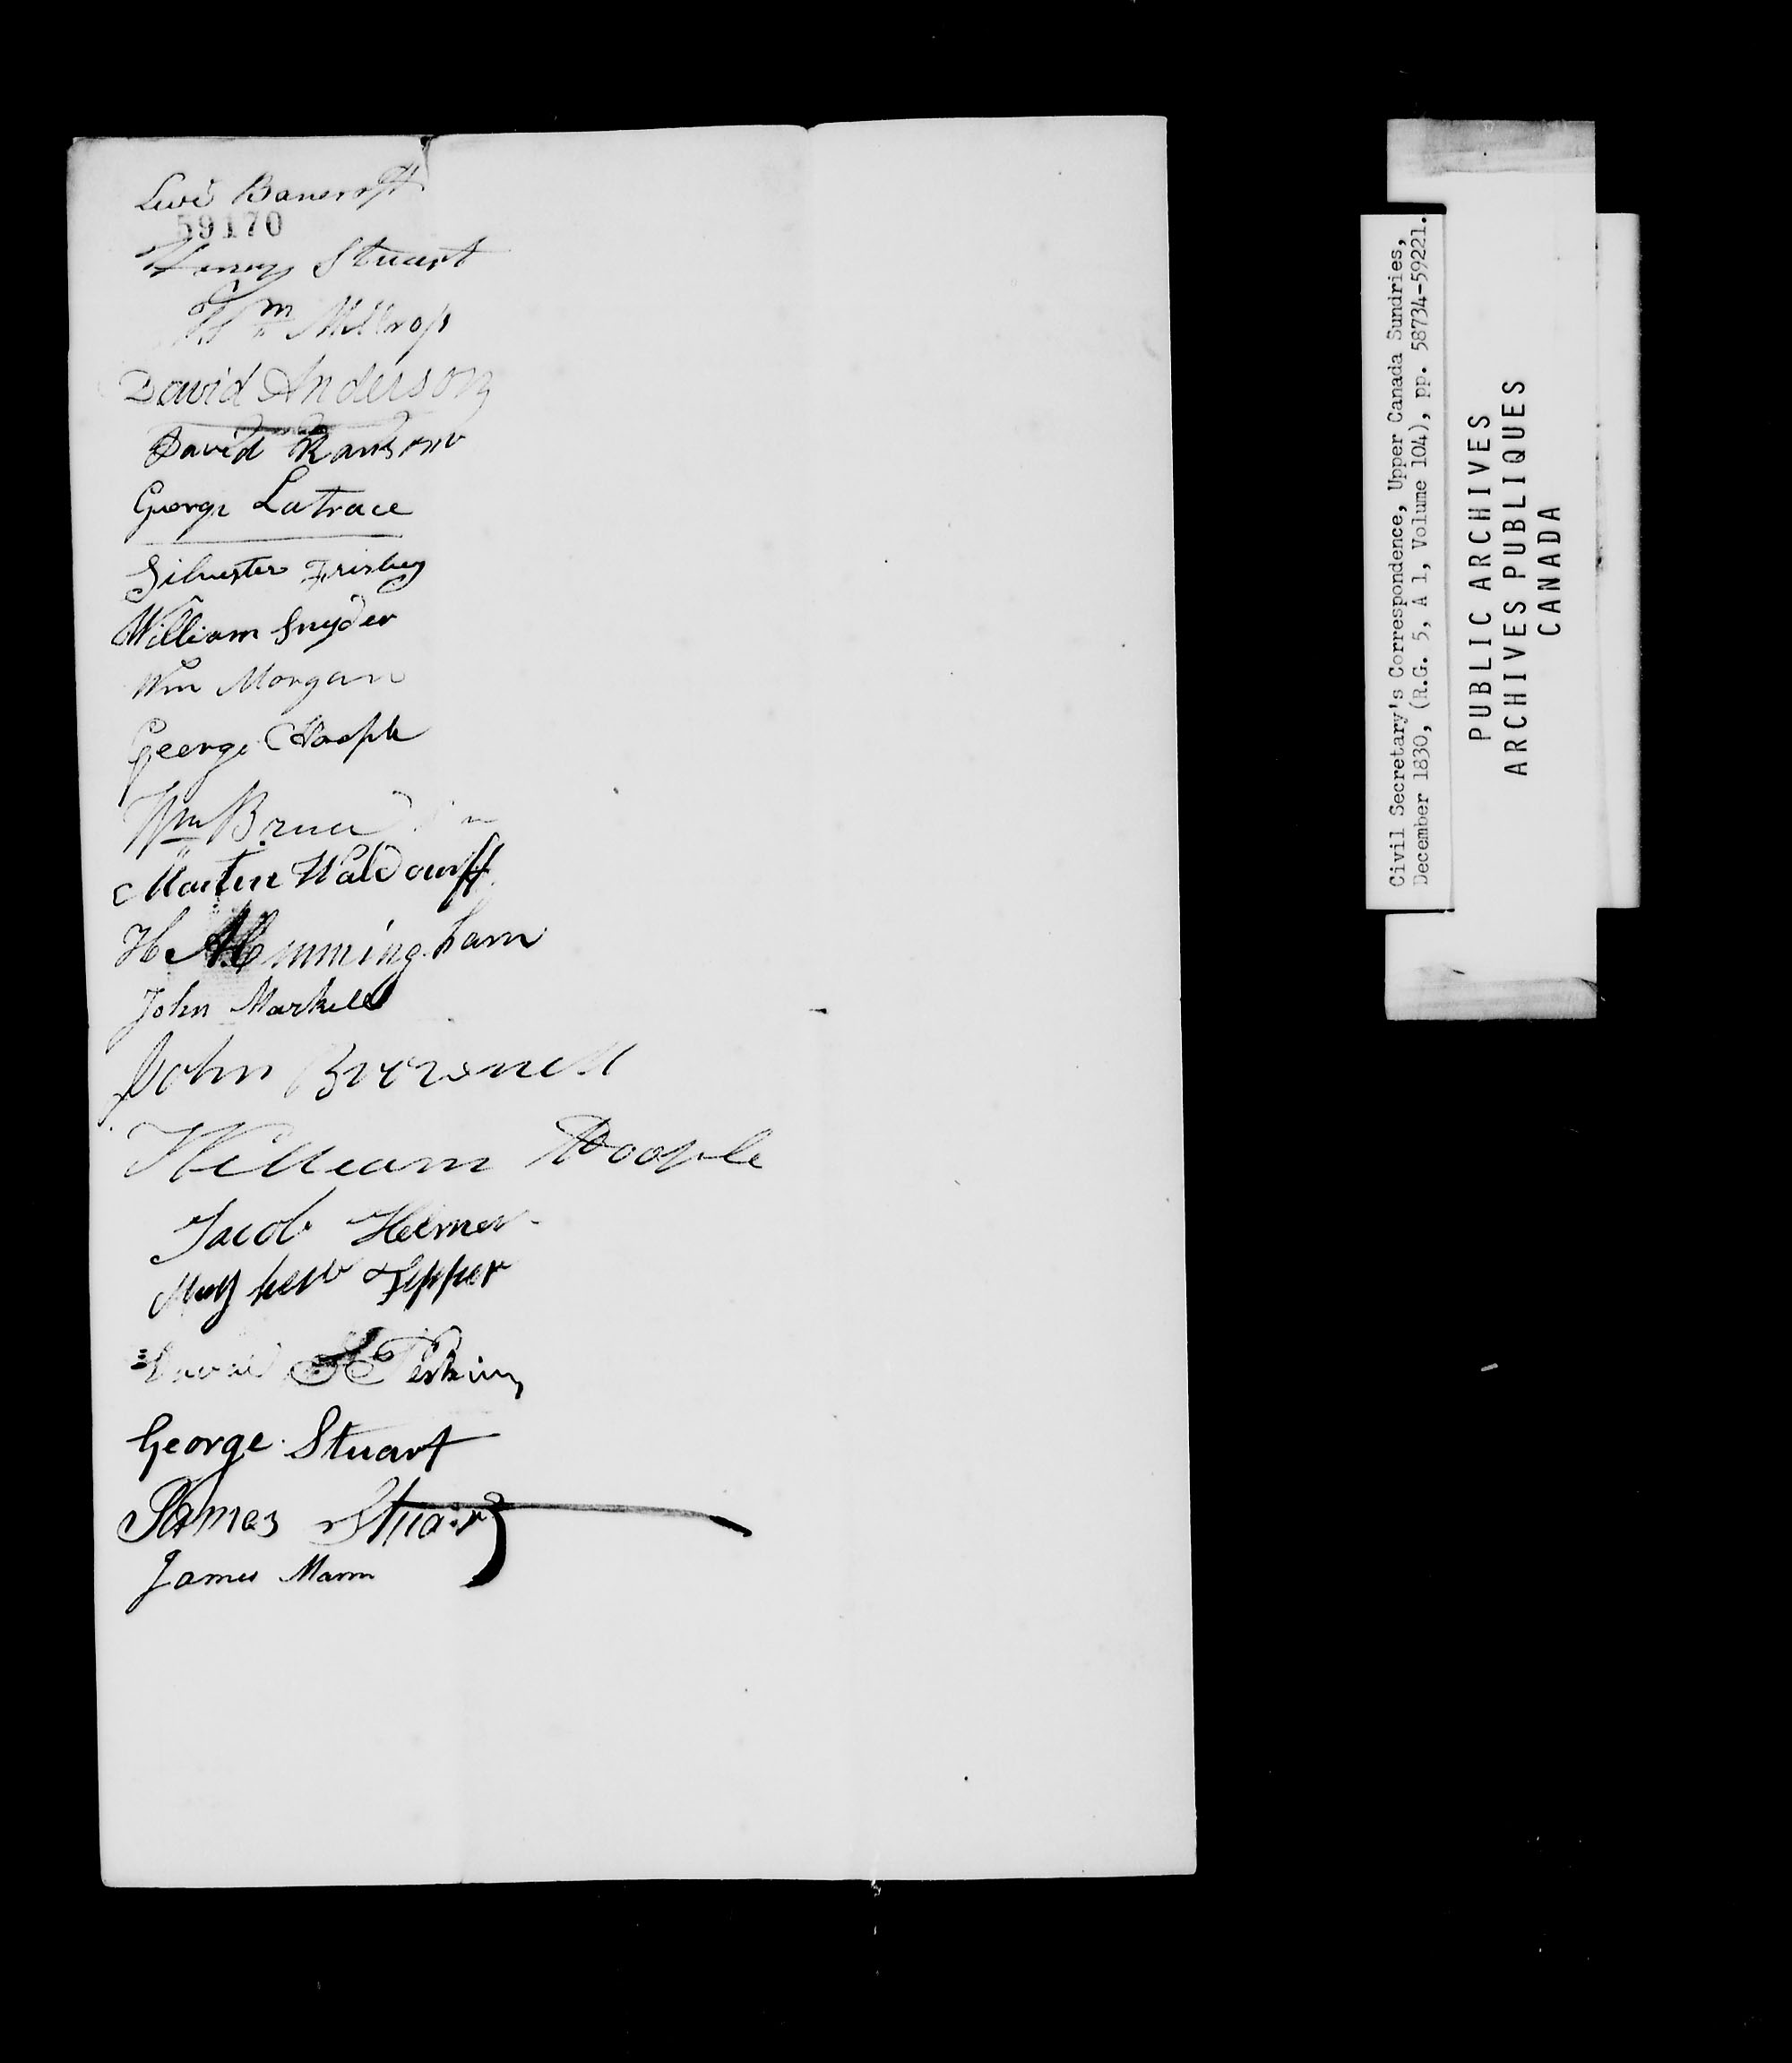 Levi Bancroft
59170
Henry Stuart
Wm Millrop
David Anderson
David Ransom
George Latrace
Silvester Frisbey
William Snyder
Wm Morgan
George Hoople
Wm Bruce
Martin Waldourff
H Hemmingham
John Markell
John Brownell
William Hoople
Jacob Helmer
Tepper
David Perkins
George Stuart
James Stuart
James Mann
Civil Secretary's Correspondence, Upper Canada Sundries,
December 1830, (R.G. 5, A 1, Volume 104), pp. 58734-59221.
PUBLIC ARCHIVES
ARCHIVES PUBLIQUES
CANADA